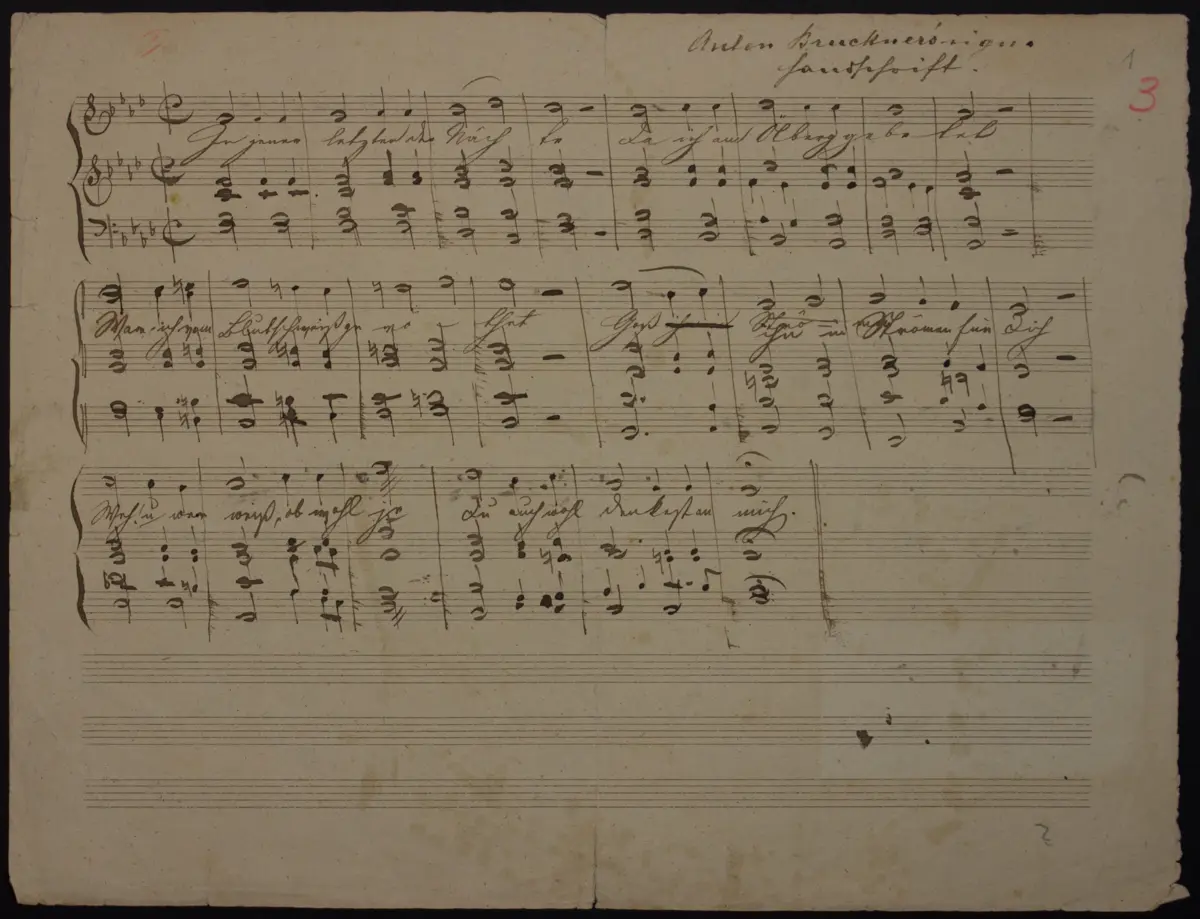 Anton Bruckners eigen.
Handschrift.
1
3
In jener letzten der Näch te Da ich am Ölberg gebe tet
War ich vom Blutschweiß ge rö thet Goß ihn in Strömen für Dich
Weh! u wer weiß, ob wohl je Du auch wohl denkest an mich.
2